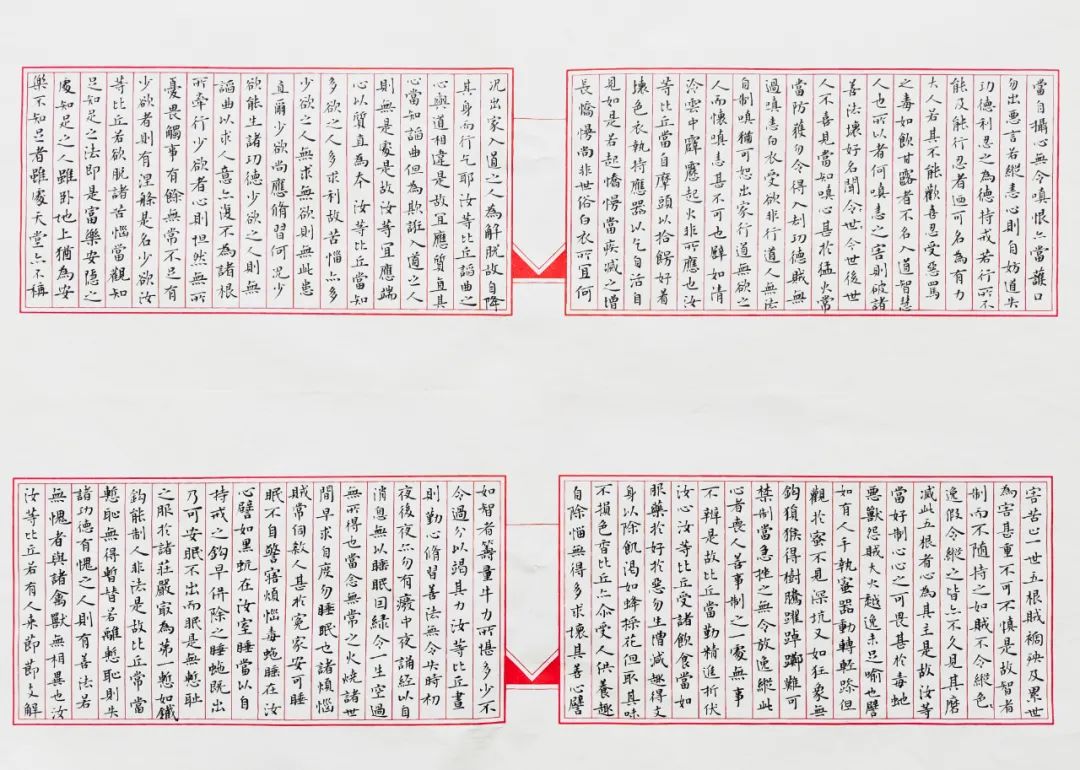 當自攝心無令嗔恨亦當護口
勿出惡言若縱恚心則自妨道失
功德利忍之為德持戒若行所不
能及能行忍者迺可名為有力
大人若其不能歡喜忍受惡罵
之毒如飲甘露者不名入道智慧
人也所以者何嗔恚之害則破諸
善法壞好名聞今世今世後世
人不喜見當知嗔心甚於猛火常
當防護勿令得入刧功德賊無
過嗔恚白衣受欲非行道人無法
自制嗔猶可恕出家行道無欲之
人而懷嗔恚甚不可也譬如清
泠雲中霹靂起火非所應也汝
等比丘當自摩頭以捨餝好着
壞色衣執持應器以乞自活自
見如是若起憍慢當疾滅之增
長憍慢尚非世俗白衣所宜何
況出家入道之人為解脫故自降
其身而行乞耶汝等比丘諂曲之
心與道相違是故宜應質直其
心當知諂曲但為欺誑入道之人
則無是處是故汝等宜應端
心以質直為本汝等比丘當知
多欲之人多求利故苦惱亦多
少欲之人無求無欲則無此患
直爾少欲尚應脩習何況少
欲能生諸功德少欲之人則無
諂曲以求人意亦復不為諸根
所牽行少欲者心則坦然無所
憂畏觸事有餘無常不足有
少欲者則有涅槃是名少欲汝
等比丘若欲脫諸苦惱當觀知
足知足之法即是富樂安隱之
處知足之人雖卧地上猶為安
樂不知足者雖處天堂亦不稱
害苦止一世五根賊禍殃及累世
為害甚重不可不慎是故智者
制而不隨持之如賊不令縱色
逸假令縱之皆亦不久見其磨
滅此五根者心為其主是故汝等
當好制心心之可畏甚於毒虵
惡獸怨賊大火越逸未足喻也譬
如有人手執蜜器動轉輕躁但
觀於蜜不見深坑又如狂象無
鈎猿猴得樹騰躍踔躑難可
禁制當急挫之無令放逸縱此
心者喪人善事制之一處無事
不辦是故比丘當勤精進折伏
汝心汝等比丘受諸飲食當如
服藥於好於惡勿生增減趣得支
身以除飢渴如蜂採花但取其味
不損色香比丘亦尒受人供養趣
自除惱無得多求壞其善心譬
如智者籌量牛力所堪多少不
令過分以竭其力汝等比丘晝
則勤心脩習善法無令失時初
夜後夜亦勿有癈中夜誦經以自
消息無以睡眠因緣令一生空過
無所得也當念無常之火燒諸世
間早求自度勿睡眠也諸煩惱
賊常伺煞人甚於寃家安可睡
眠不自警寤煩惱毒虵睡在汝
心譬如黑蚖在汝室睡當以自
持戒之鈎早併除之睡虵既出
乃可安眠不出而眠是無慙恥
之服於諸莊嚴冣為第一慙如鐵
鈎能制人非法是故比丘常當
慙恥無得暫替若離慙恥則失
諸功德有愧之人則有善法若
無愧者與諸禽獸無相異也汝
汝等比丘若有人来節節支解